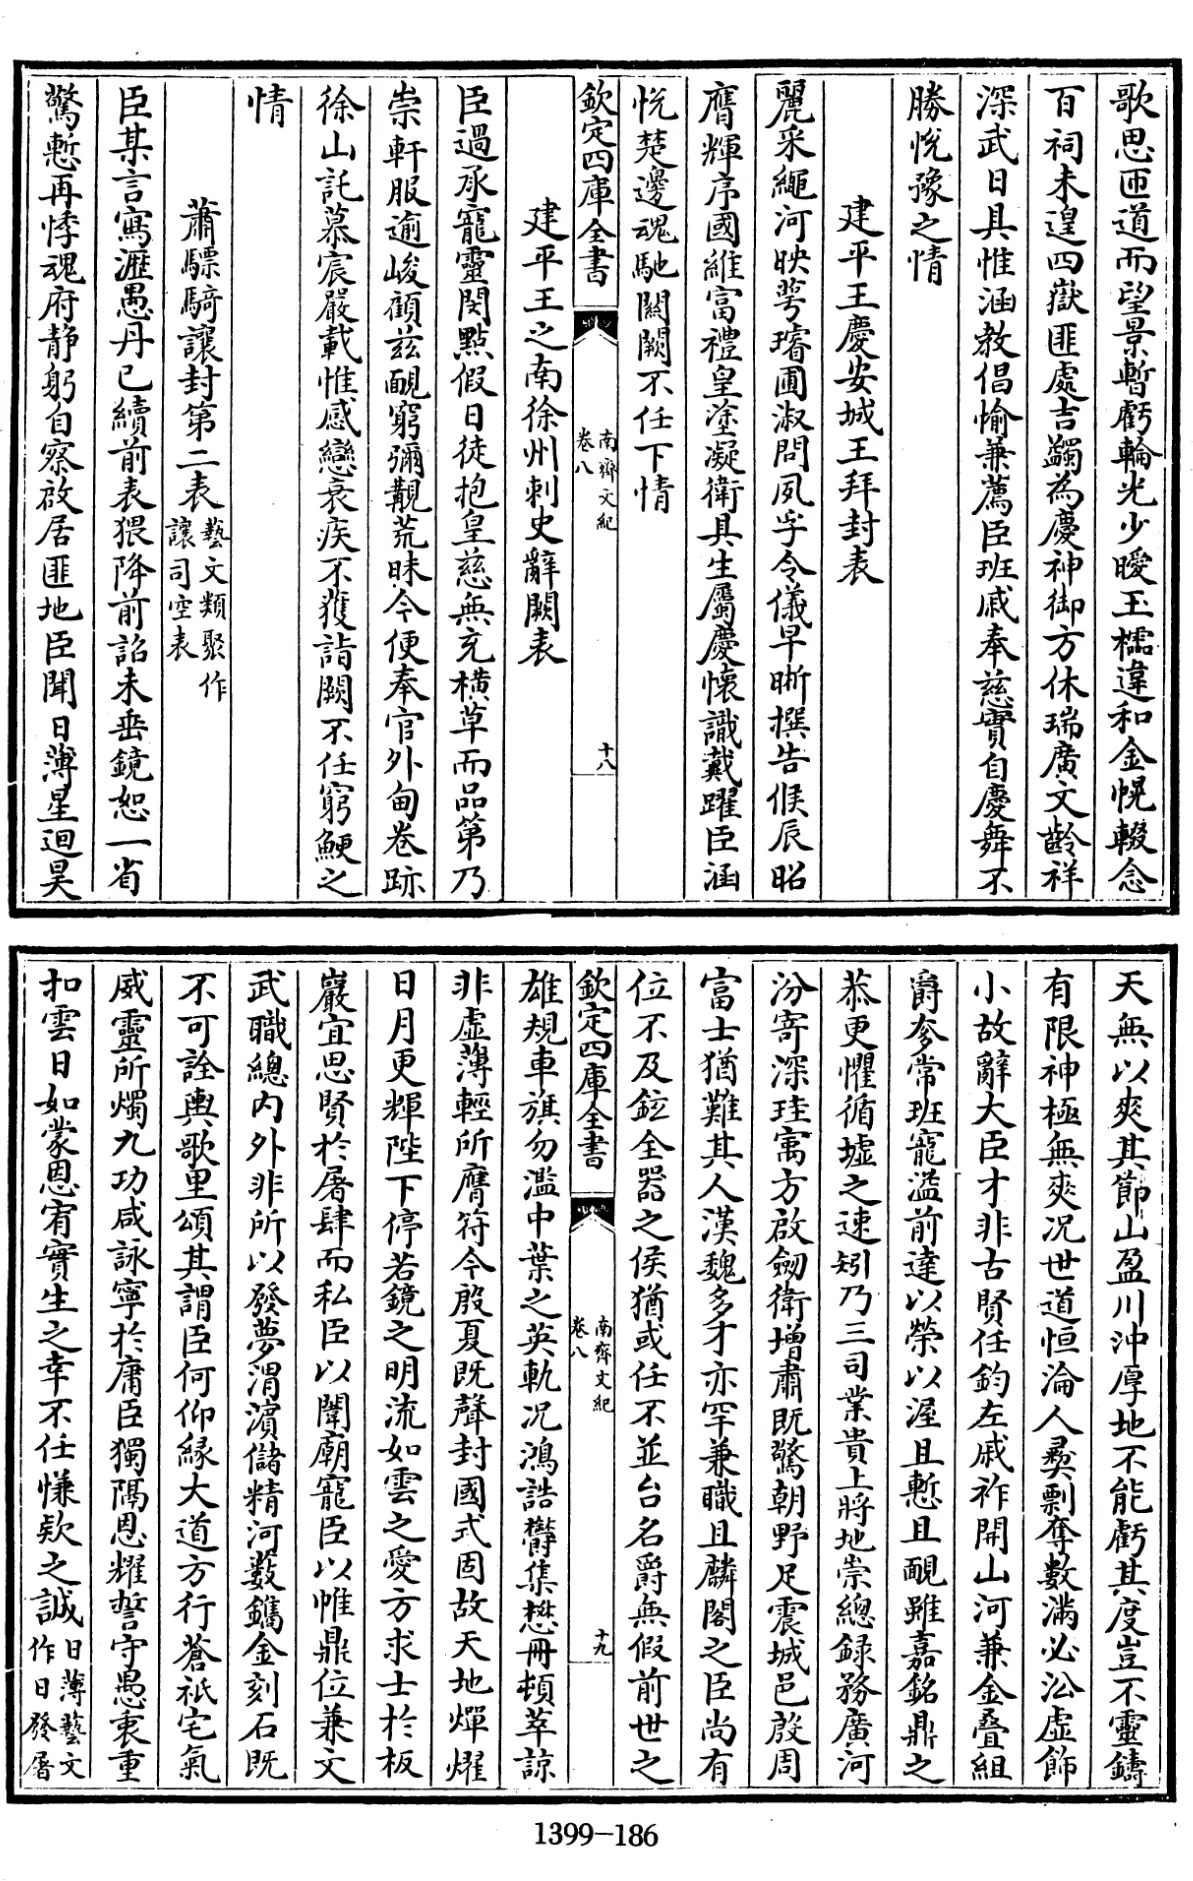 歌思匝道而望景暫虧輪光少曖玉檽違和金幌輟念
百祠未遑四嶽匪處吉蠲為慶神御方休瑞廣文齡祥
深武日具惟涵教倡愉兼薦臣班戚奉慈實自慶舞不
勝悅豫之情
建平王慶安城王拜封表
麗采繩河映萼璿圃淑問夙孚令儀早晰撰告候辰昭
膺輝序國維富禮皇塗凝衛具生屬慶懷識戴躍臣涵
恱楚邊魂馳闕闕不任下情
欽定四庫全書
南齊文紀
卷八
十八
建平王之南徐州刺史辭闕表
臣過承寵靈閔黙假日徒抱皇慈無充橫草而品第乃
崇軒服逾峻顧兹靦窮彌覯荒昧今便奉官外甸卷跡
徐山託慕宸嚴載惟感戀衰疾不獲詣闕不任窮鯁之
情
蕭驃騎讓封第二表
藝文類聚作
讓司空表
臣某言寫瀝愚丹已續前表猥降前詔未垂鏡恕一省
驚慙再悸魂府静躬自察啟居匪地臣聞日薄星迴昊
天無以爽其節山盈川沖厚地不能虧其度豈不靈鑄
有限神極無爽况世道恒淪人彛剽奪數滿必沴虛飾
小故辭大臣才非古賢任鈞左戚祚開山河兼金疊組
爵參常班寵溢前達以榮以渥且慙且靦雖嘉銘鼎之
恭更懼循墟之速矧乃三司業貴上將地崇總録務廣河
汾寄深珪寓方啟劒衛增肅既驚朝野足震城邑殷周
富士猶難其人漢魏多才亦罕兼職且麟閣之臣尚有
位不及鉉全器之侯猶或任不並台名爵無假前世之
欽定四庫全書
南齊文紀
卷八
十九
雄規車旗勿濫中葉之英軌况鴻誥欝集懋冊頓萃諒
非虛薄輕所膺符今殷夏既聲封國式固故天地燀燿
日月更輝陛下停若鏡之明流如雲之愛方求士於板
巖宜思賢於屠肆而私臣以闈廟寵臣以帷鼎位兼文
武職總内外非所以發夢渭濱儲精河藪鐫金刻石既
不可詮輿歌里頌其謂臣何仰緣大道方行蒼祇宅氣
威靈所燭九功咸詠寧於庸臣獨隔恩耀誓守愚衷重
扣雲日如蒙恩宥實生之幸不任慊欵之誠
日薄藝文
作日發屠
1399-186